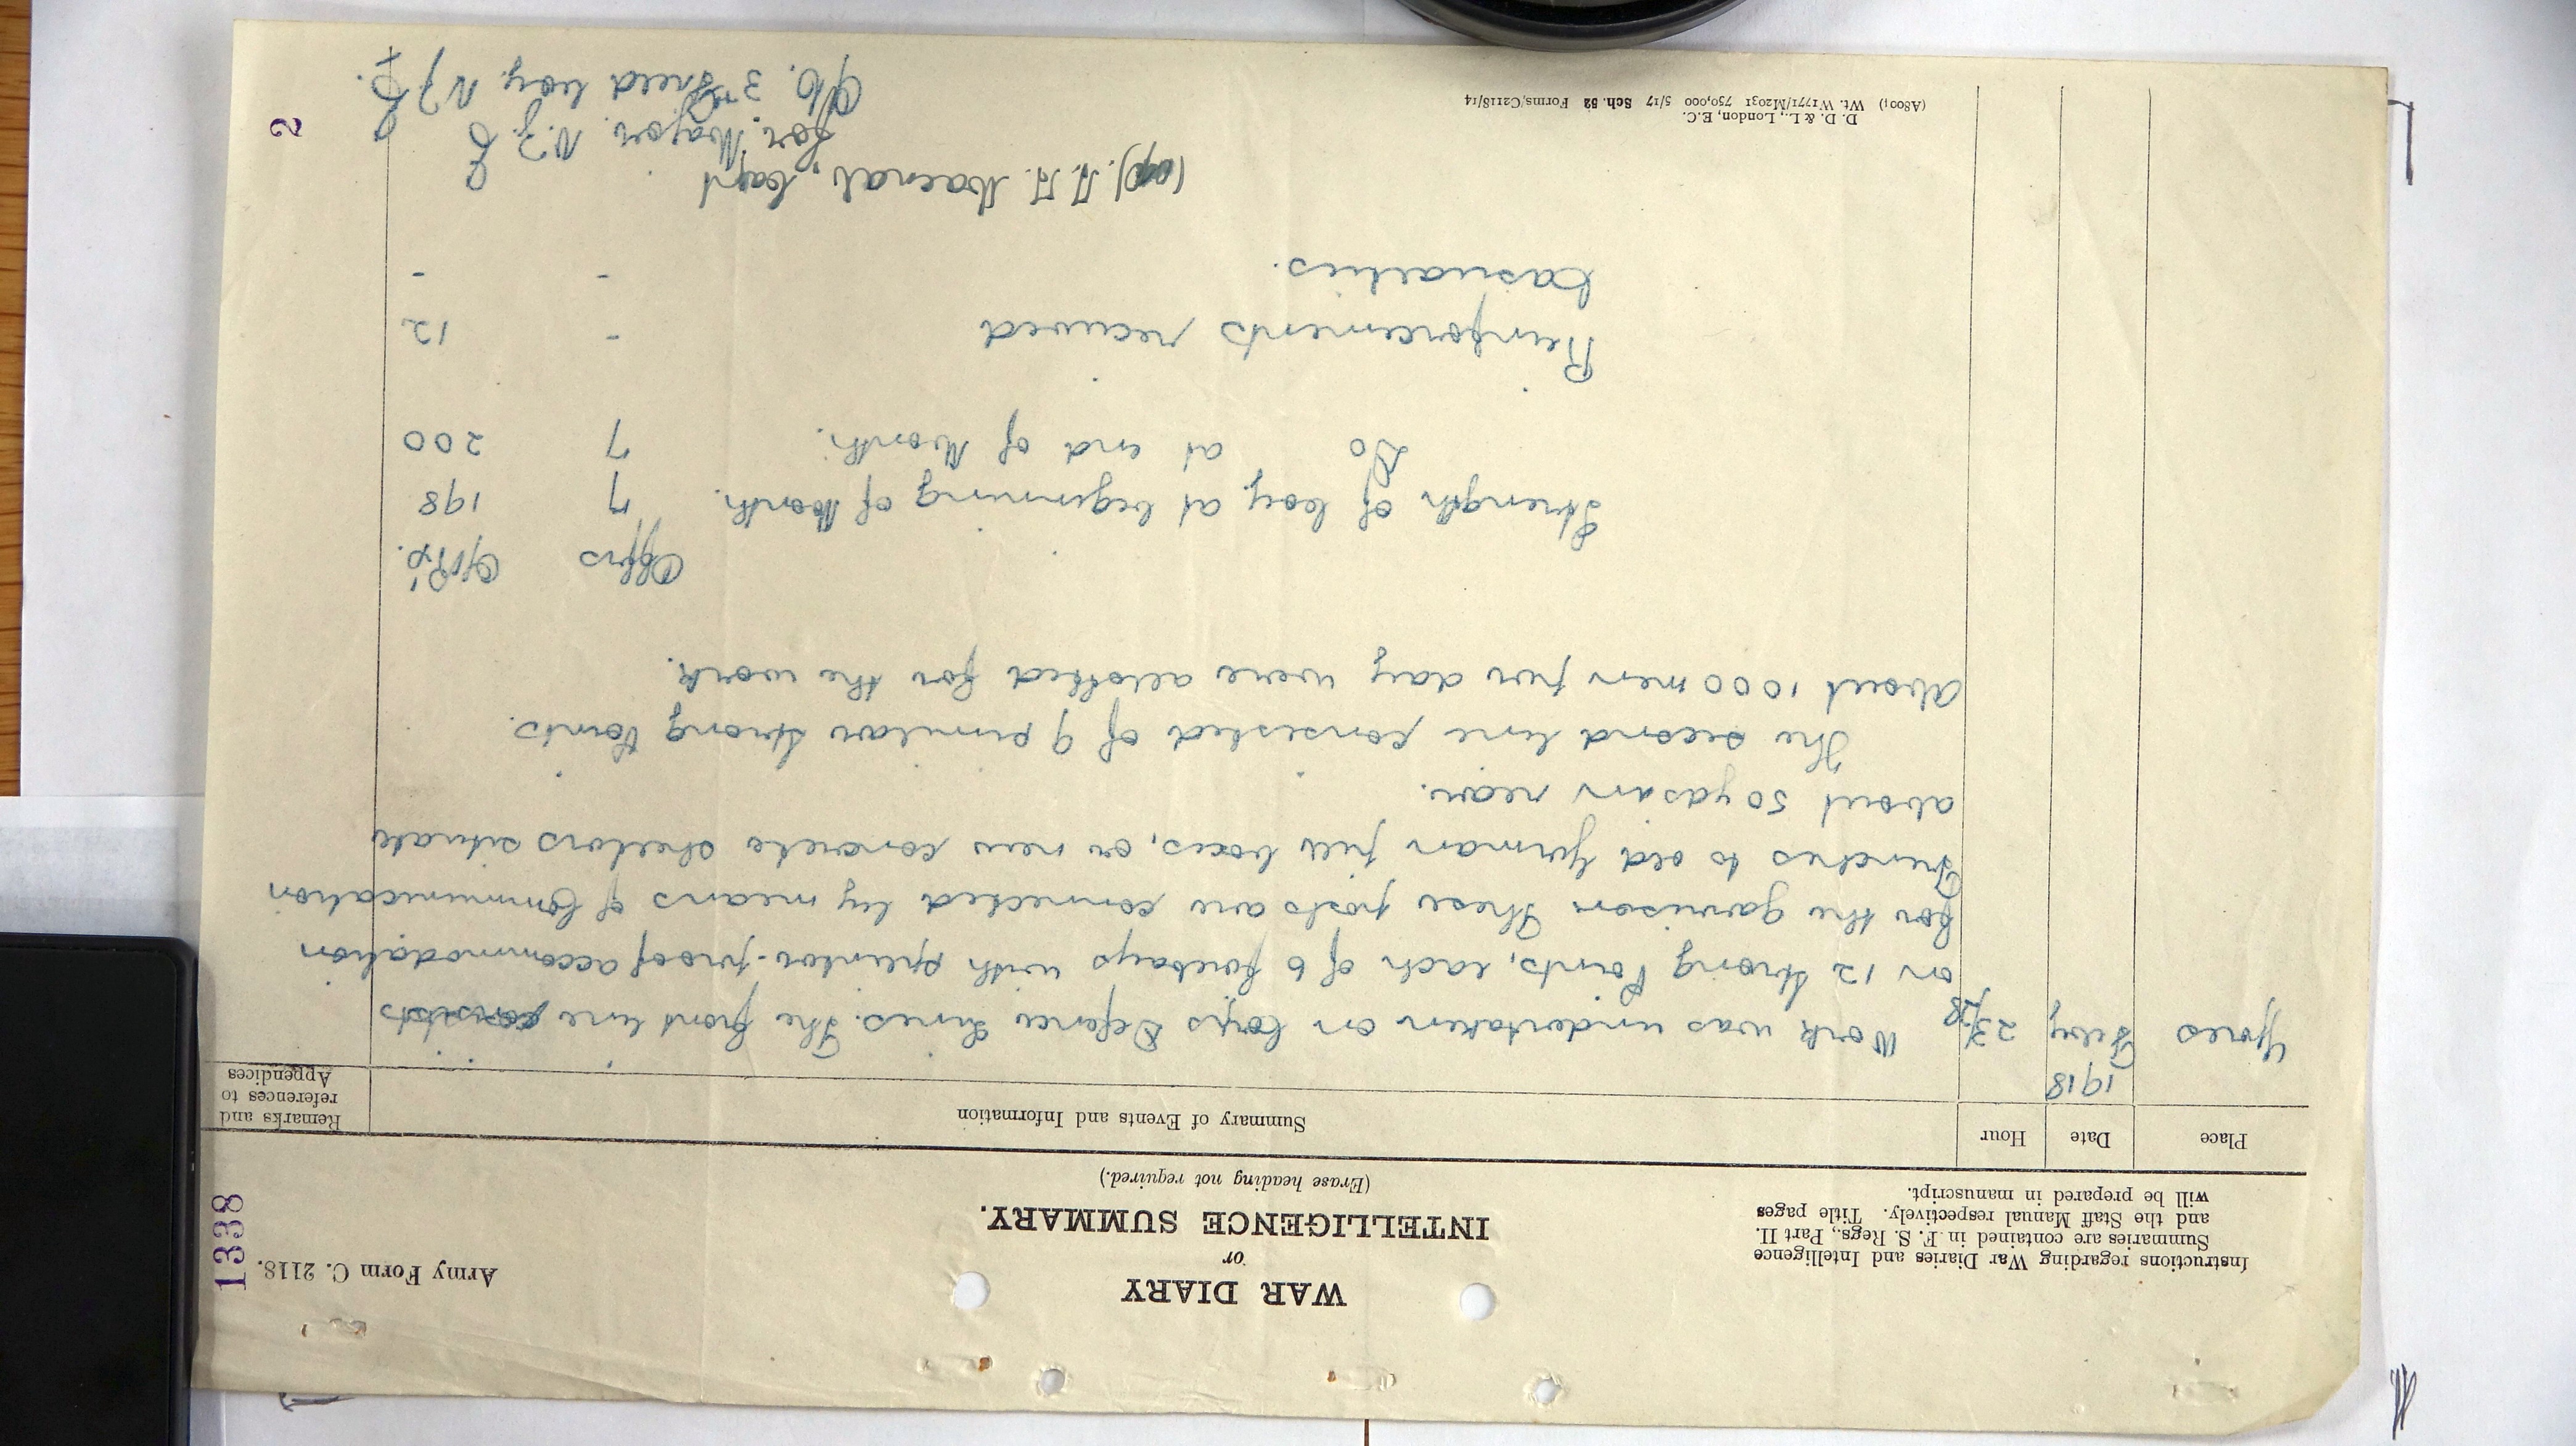 1338
Army Form C. 2118.
WAR DIARY
or
INTELLIGENCE SUMMARY.
(Erase heading not required.)
Instructions regarding War Diaries and Intelligence
Summaries are contained in F. S. Regs., Part II.
and the Staff Manual respectively. Title pages
will be prepared in manuscript.
Place Date Hour Summary of Events and Information Remarks and references to Appendices
1918
Ypres Feby 23/28 Work was undertaken on Corps Defence Lines. The front line consists
on 12 Strong Points, each of 6 firebays with splinter-proof accommodation
for the garrison These posts are connected by means of Communication
Trenches to old German pill boxes, or new concrete shelters situate
about 50 yds in rear.
The second line consisted of 9 similar Strong Points.
About 1000 men per day were allotted for the work.
Offrs O/Rs.
Strength of Coy. at beginning of Month. 7 198
Do at end of Month. 7 200
Reinforcements received - 12
Casualties. - -
Capt
for: Major. N.Z.E
O/C. 3rd Field Coy. N.Z.E.
(A8001) Wt. W1771/M2031 750,000 5/17 Sch. 52 Forms/C2118/14
D. D. & L., London, E.C.
2